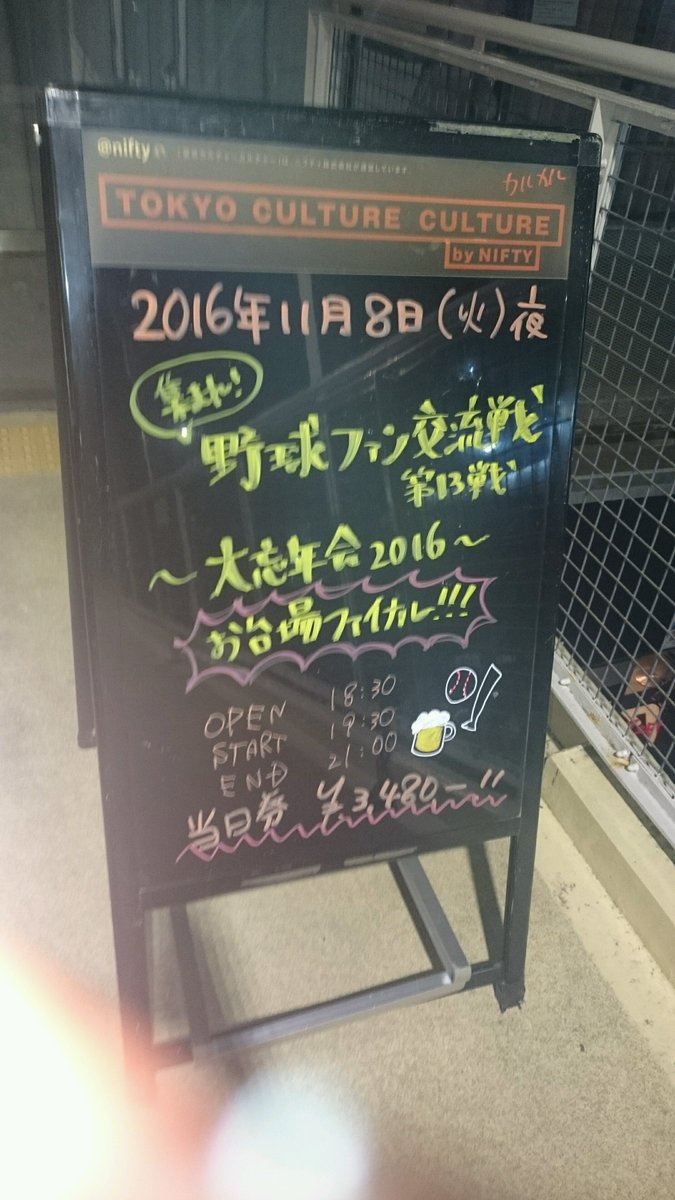 @nifty
カルカル
TOKYO CULTURE CULTURE
by NIFTY
2016年11月8日(火)夜
集まれ!
野球ファン交流戦
第13戦
～大忘年会2016～
お台場ファイカル!!!
OPEN 18:30
START 19:30
END 21:00
当日券 ¥3,480-!!